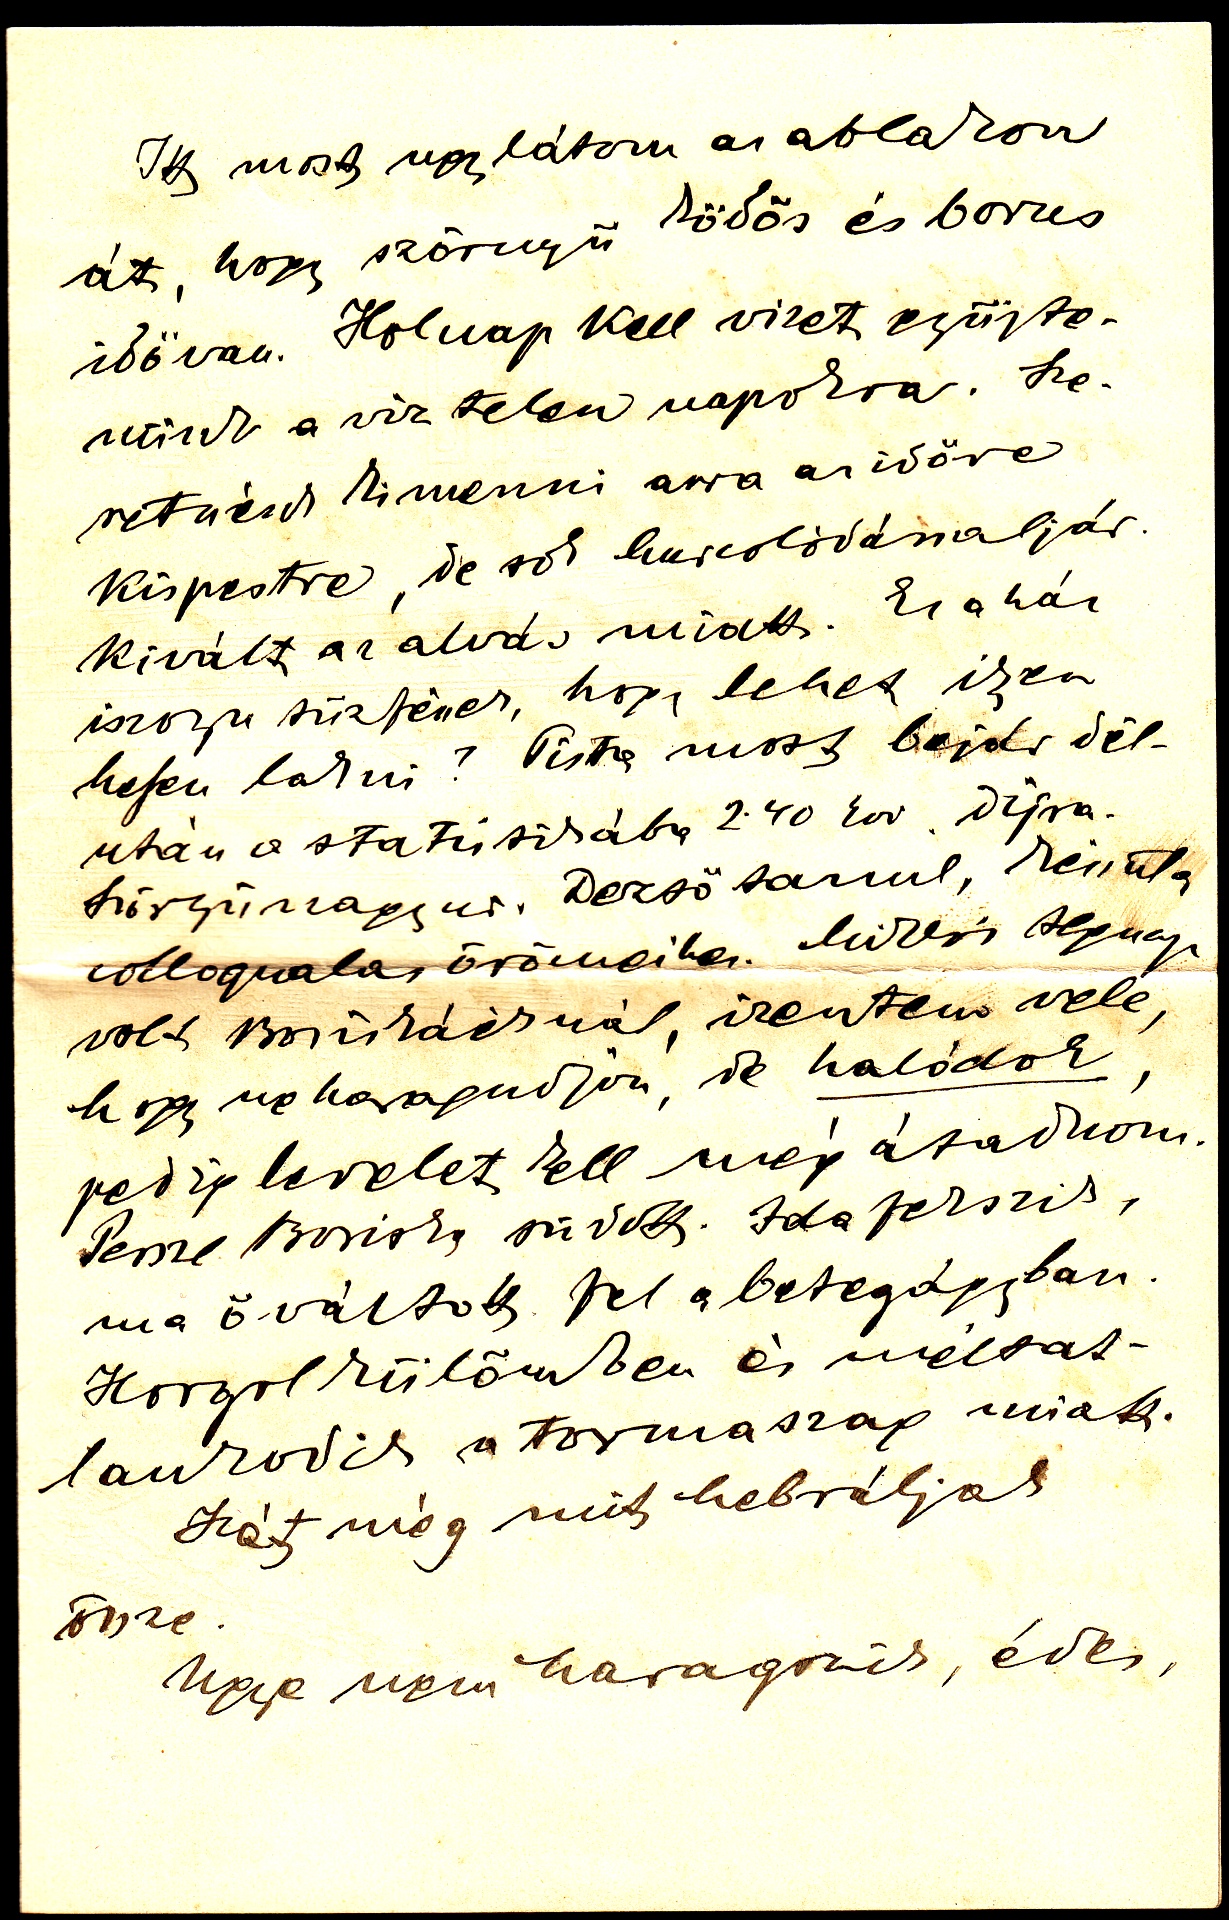 Itt most ugy látom az ablakon
át, hogy szörnyü ködös és borus
idö van. Holnap kell vizet gyüjte-
nünk a viztelen napokra. Sze-
retnénk kimenni arra az időre
Kispestre, de sok hurcolódással jár.
Kivált az alvás miatt. Ez a ház
iszonyu tüzfészek, hogy lehet ilyen
helyen lakni? Pista most bejár dél-
után a statisztikába 2.40 kor. dijra.
Dezsö tanul, készül a
colloqualas örömeihez. tegnap
volt Boriskáéknál, izentem vele,
hogy ne haragudjon, de halódok,
pedig levelet kell még átadnom.
Persze Boriska sirdott. Ida fekszik,
ma ő váltott fel a betegágyban.
Horgol különben és méltat-
lankodik a tormaszag miatt.
Hát még mit hebráljak
össze.
Ugye nem haragszik, édes,